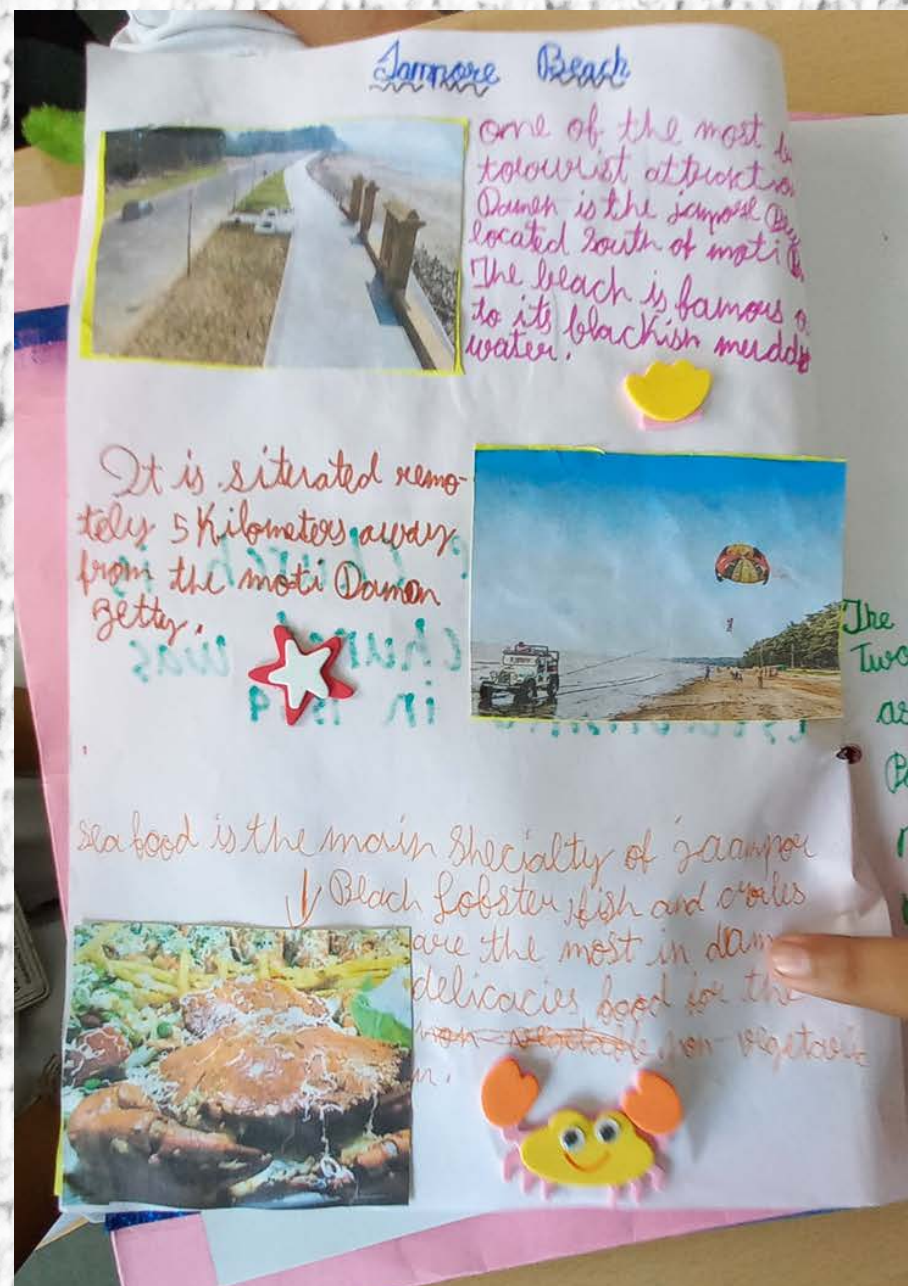 Jampore Beach
one of the most b
tourwist attraction
Damen is the jampore Be
located South of moti D
The beach is famous
to its blackish mudd
water.
It is siterated remo-
tely 5 Kilometers away
from the moti Daman
Jetty.
The
Two
as
Sea food is the main Specialty of jaampor
Beach Lobster, fish and
are the most in dam
delicacies food for the
non-vegetable non-vegetavle
n.